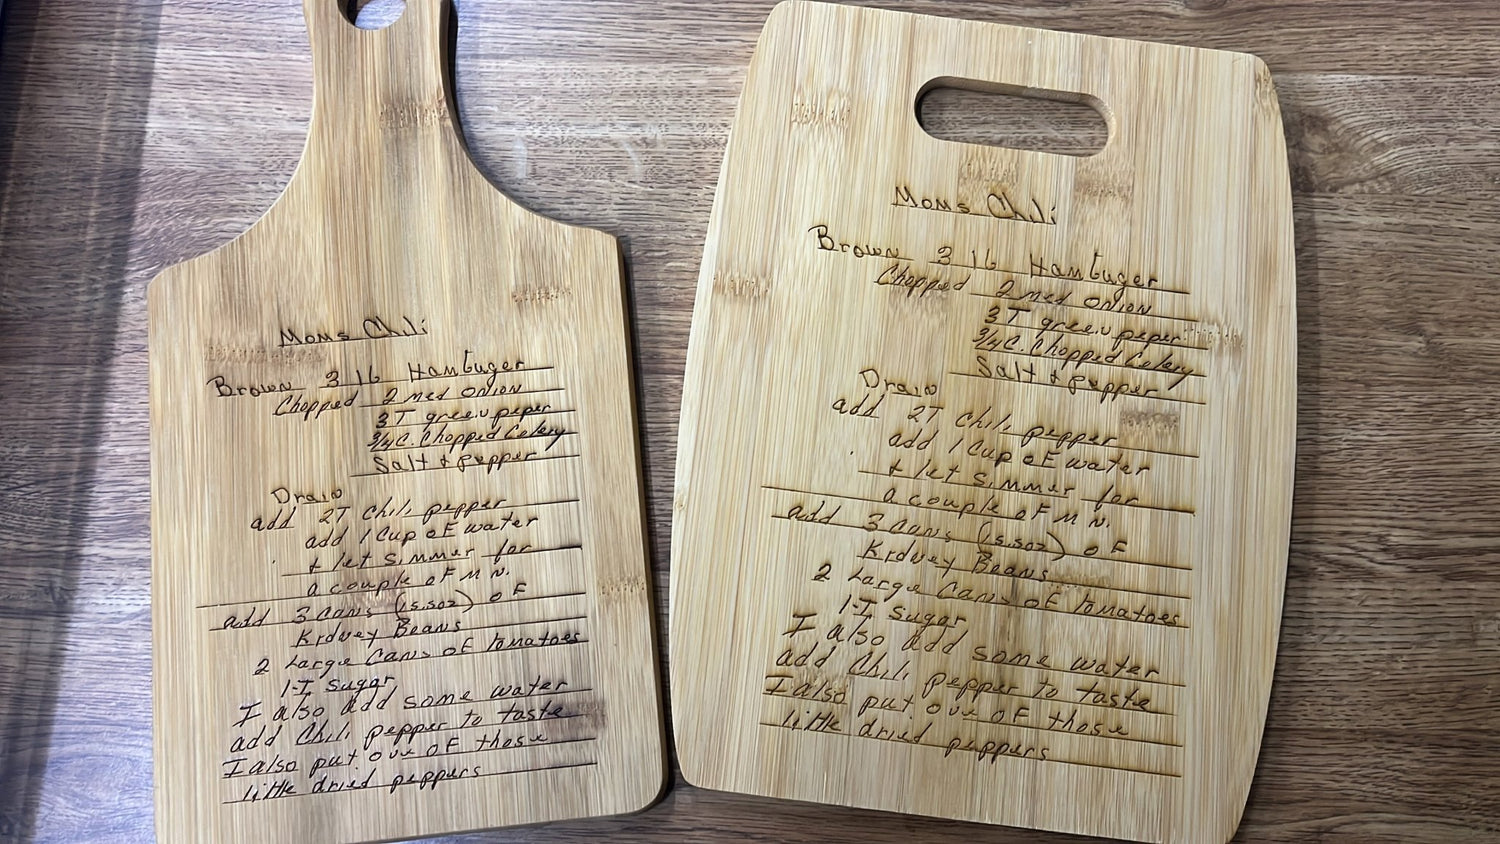 Moms Chili
Brown 3 lb Hambuger
Chopped 2 med onion
3 T green peper
3/4 C. Chopped Celery
Salt & pepper
Drain
add 2T Chili pepper
add 1 Cup of water
& let simmer for
a couple of MN.
add 3 cans (15.5oz) of
Kidney Beans
2 Large Cans of tomatoes
1-T sugar
I also add some water
add Chili pepper to taste
I also put one of those
little dried peppers
Moms Chili
Brown 3 lb Hambuger
Chopped 2 med onion
3 T green peper
3/4 C. Chopped Celery
Salt & pepper
Drain
add 2T Chili pepper
add 1 Cup of water
& let simmer for
a couple of MN.
add 3 cans (15.5oz) of
Kidney Beans
2 Large Cans of tomatoes
1-T sugar
I also add some water
add Chili pepper to taste
I also put one of those
little dried peppers